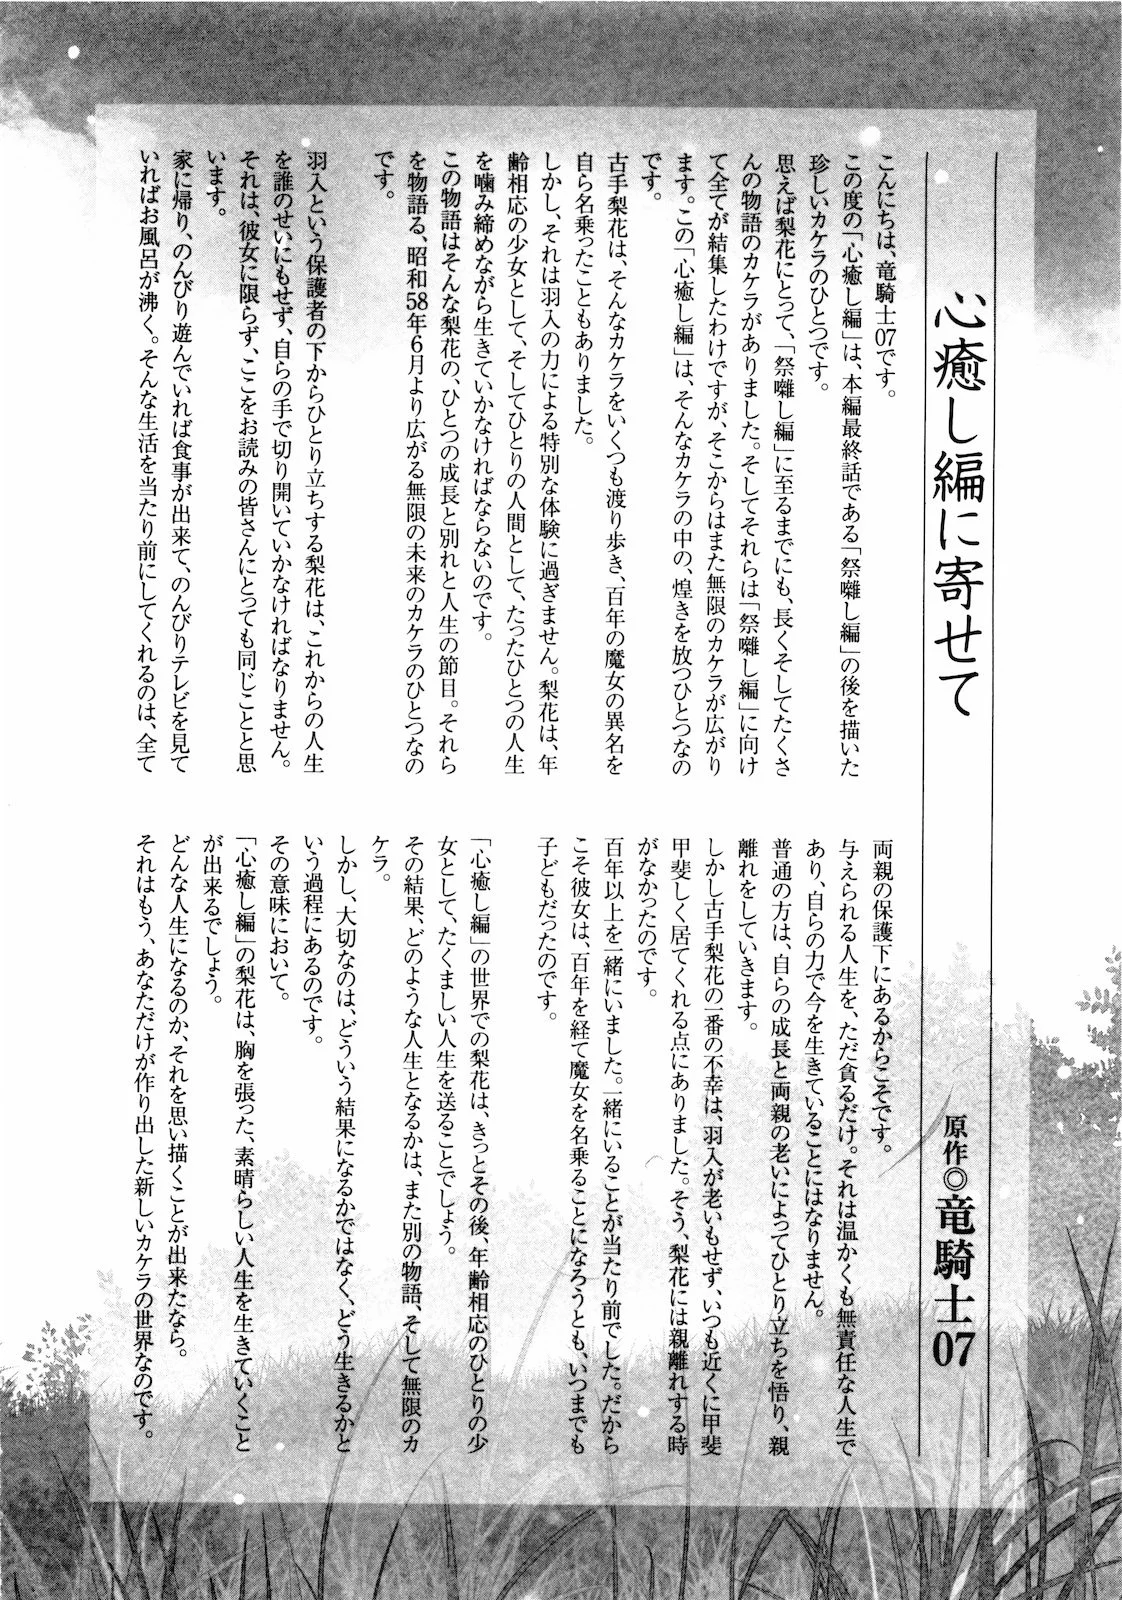 心癒し編に寄せて
原作◎竜騎士07
こんにちは、竜騎士07です。
この度の「心癒し編」は、本編最終話である「祭囃し編」の後を描いた
珍しいカケラのひとつです。
思えば梨花にとって、「祭囃し編」に至るまでにも、長くそしてたくさ
んの物語のカケラがありました。そしてそれらは「祭囃し編」に向け
て全てが結集したわけですが、そこからはまた無限のカケラが広がり
ます。この「心癒し編」は、そんなカケラの中の、煌きを放つひとつなの
です。
古手梨花は、そんなカケラをいくつも渡り歩き、百年の魔女の異名を
自ら名乗ったこともありました。
しかし、それは羽入の力による特別な体験に過ぎません。梨花は、年
齢相応の少女として、そしてひとりの人間として、たったひとつの人生
を噛み締めながら生きていかなければならないのです。
この物語はそんな梨花の、ひとつの成長と別れと人生の節目。それら
を物語る、昭和58年6月より広がる無限の未来のカケラのひとつなの
です。
羽入という保護者の下からひとり立ちする梨花は、これからの人生
を誰のせいにもせず、自らの手で切り開いていかなければなりません。
それは、彼女に限らず、ここをお読みの皆さんにとっても同じことと思
います。
家に帰り、のんびり遊んでいれば食事が出来て、のんびりテレビを見て
いればお風呂が沸く。そんな生活を当たり前にしてくれるのは、全て
両親の保護下にあるからこそです。
与えられる人生を、ただ貪るだけ。それは温かくも無責任な人生で
あり、自らの力で今を生きていることにはなりません。
普通の方は、自らの成長と両親の老いによってひとり立ちを悟り、親
離れをしていきます。
しかし古手梨花の一番の不幸は、羽入が老いもせず、いつも近くに甲斐
甲斐しく居てくれる点にありました。そう、梨花には親離れする時
がなかったのです。
百年以上を一緒にいました。一緒にいることが当たり前でした。だから
こそ彼女は、百年を経て魔女を名乗ることになろうとも、いつまでも
子どもだったのです。
「心癒し編」の世界での梨花は、きっとその後、年齢相応のひとりの少
女として、たくましい人生を送ることでしょう。
その結果、どのような人生となるかは、また別の物語、そして無限のカ
ケラ。
しかし、大切なのは、どういう結果になるかではなく、どう生きるかと
いう過程にあるのです。
その意味において。
「心癒し編」の梨花は、胸を張った、素晴らしい人生を生きていくこと
が出来るでしょう。
どんな人生になるのか、それを思い描くことが出来たなら。
それはもう、あなただけが作り出した新しいカケラの世界なのです。